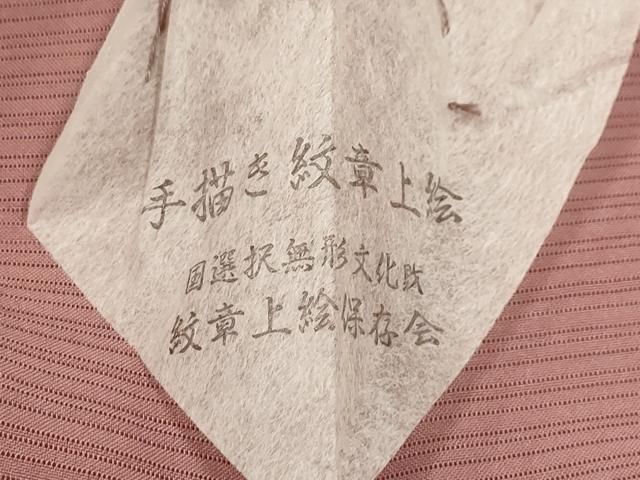 手描き紋章上絵
国選択無形文化財
紋章上絵保存会